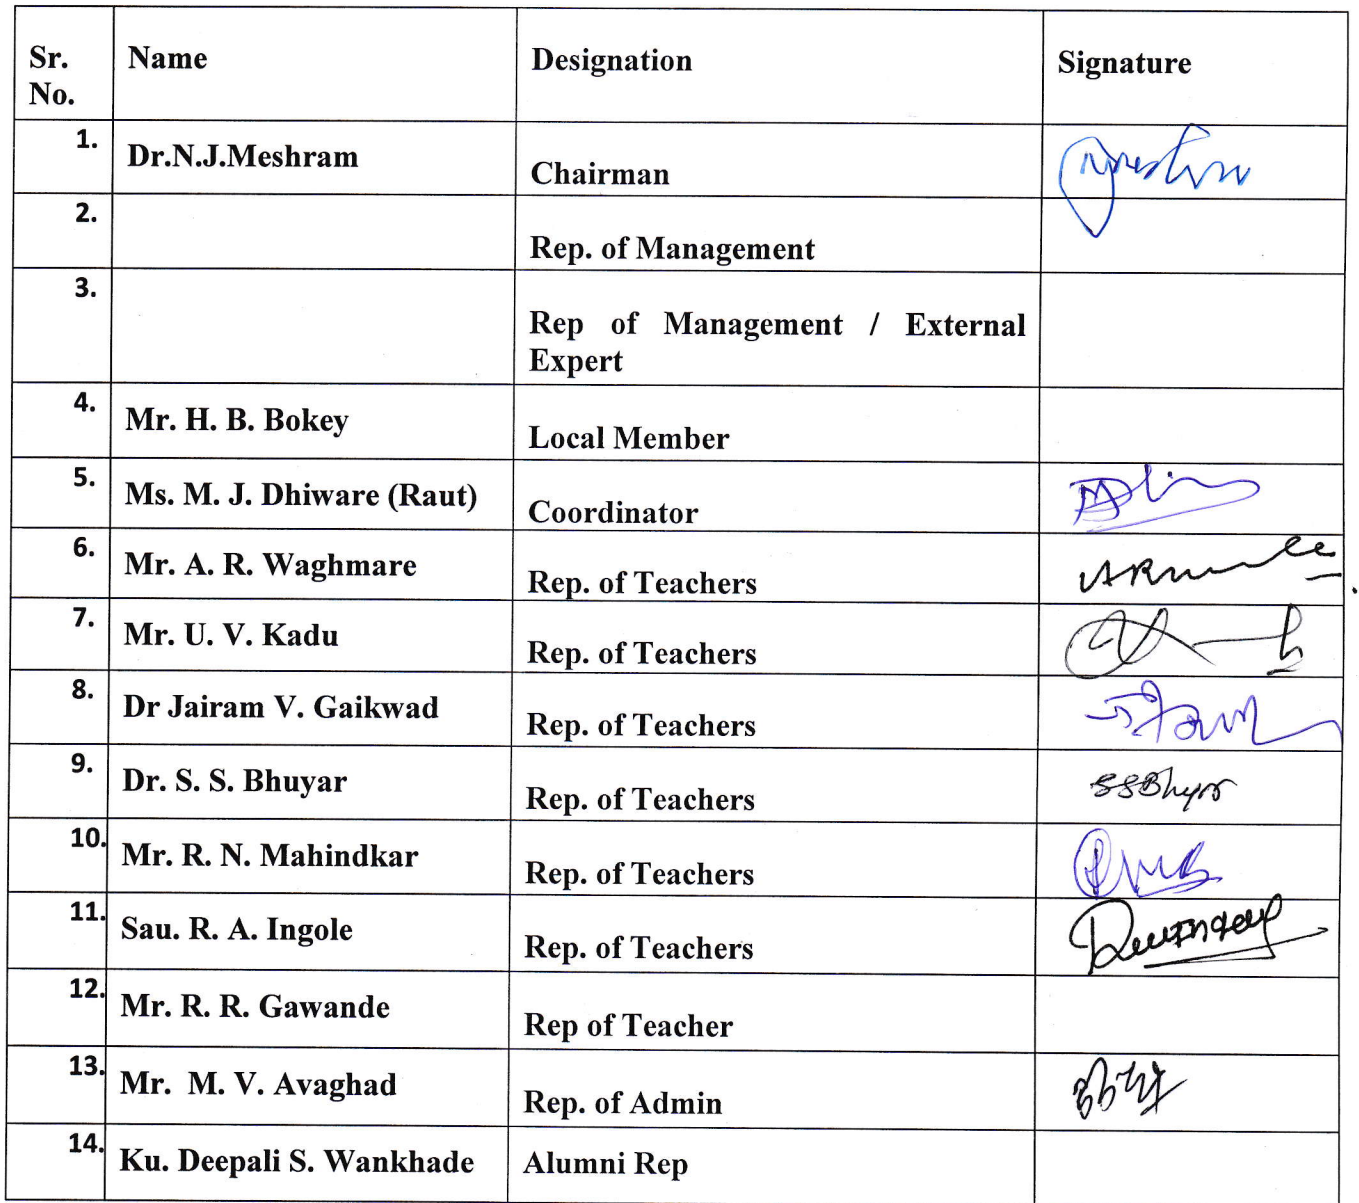 Sr. No. Name Designation Signature
1. Dr.N.J.Meshram Chairman
2. Rep. of Management
3. Rep of Management / External
Expert
4. Mr. H. B. Bokey Local Member
5. Ms. M. J. Dhiware (Raut) Coordinator
6. Mr. A. R. Waghmare Rep. of Teachers
7. Mr. U. V. Kadu Rep. of Teachers
8. Dr Jairam V. Gaikwad Rep. of Teachers
9. Dr. S. S. Bhuyar Rep. of Teachers SSBhyar
10. Mr. R. N. Mahindkar Rep. of Teachers
11. Sau. R. A. Ingole Rep. of Teachers
12. Mr. R. R. Gawande Rep of Teacher
13. Mr. M. V. Avaghad Rep. of Admin
14. Ku. Deepali S. Wankhade Alumni Rep